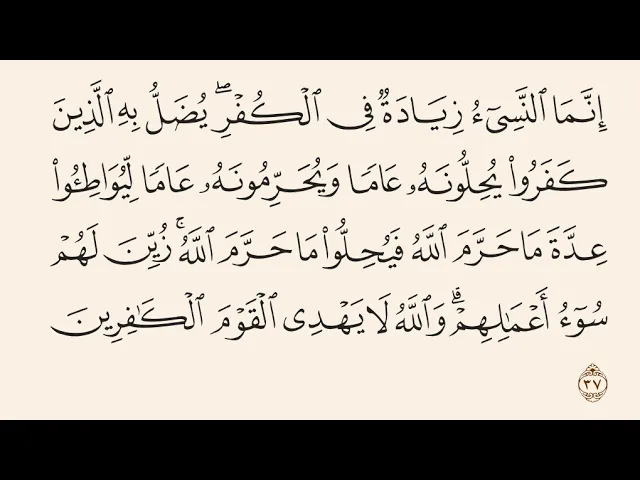 إِنَّمَا ٱلنَّسِىٓءُ زِيَادَةٌ فِى ٱلْكُفْرِ ۖ يُضَلُّ بِهِ ٱلَّذِينَ
كَفَرُوا۟ يُحِلُّونَهُۥ عَامًا وَيُحَرِّمُونَهُۥ عَامًا لِّيُوَاطِـُٔوا۟
عِدَّةَ مَا حَرَّمَ ٱللَّهُ فَيُحِلُّوا۟ مَا حَرَّمَ ٱللَّهُ ۚ زُيِّنَ لَهُمْ
سُوٓءُ أَعْمَـٰلِهِمْ ۗ وَٱللَّهُ لَا يَهْدِى ٱلْقَوْمَ ٱلْكَـٰفِرِينَ
٣٧